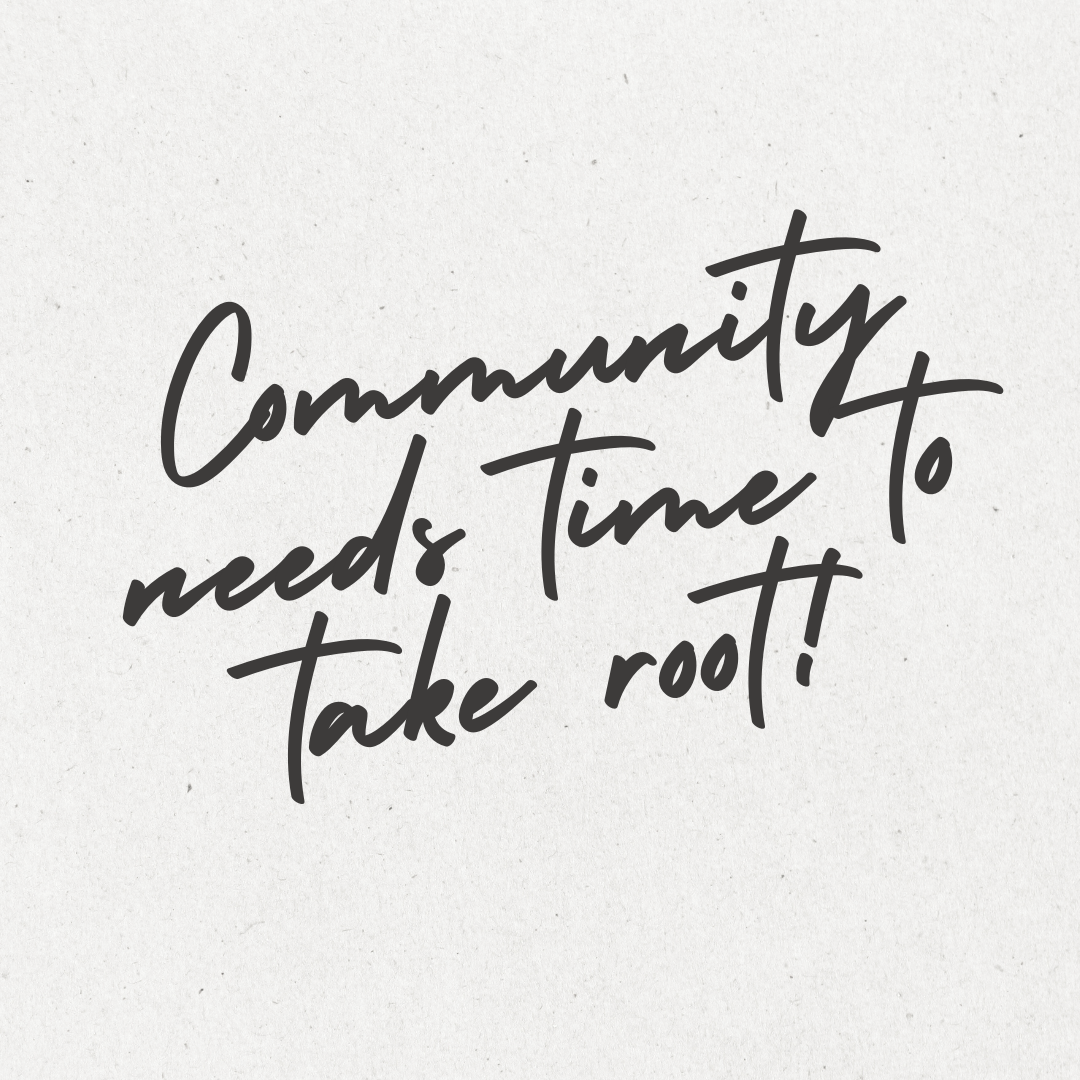 Community
needs time to
take root!